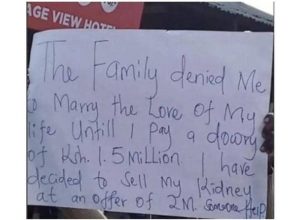 AGE VIEW HOTE
The Family denied Me
to Marry the Love Of My
life Untill I Pay a dowry
of Ksh. 1.5 Million. I have
decided to Sell My Kidney
at an offer of 2M. Someone Help